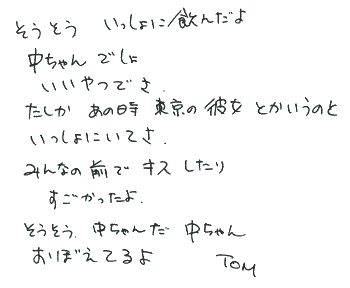 そうそう いっしょに飲んだよ
中ちゃん でしょ
いいやつでさ.
たしか あの日時 東京の彼女 とかいうのと
いっしょにいてさ.
みんなの前で キス したり
すごかったよ.
そうそう. 中ちゃんだ 中ちゃん
おぼえてるよ TOM